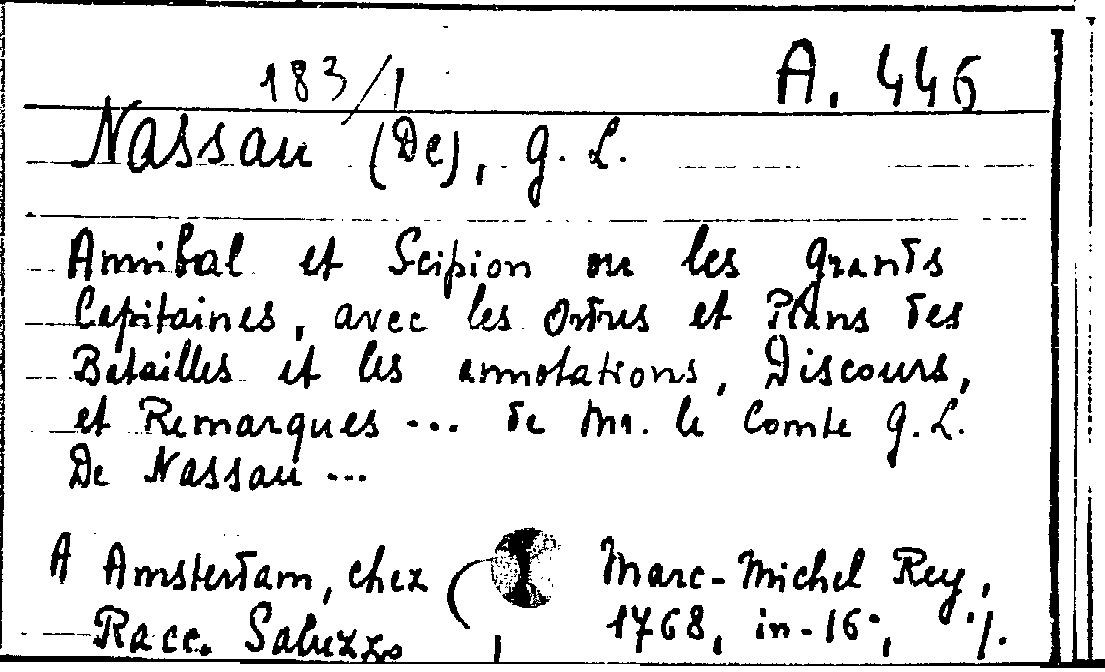 183/1 A. 446
Nassau (De), G. L.
Annibal et Scipion ou les Grands
Capitaines, avec les Ordres et Plans des
Batailles et les annotations, Discours,
et Remarques ... de Mr. le Comte G. L.
De Nassau ...
A Amsterdam, chez Marc-Michel Rey,
Racc. Saluzzo 1768, in-16°, ·/.